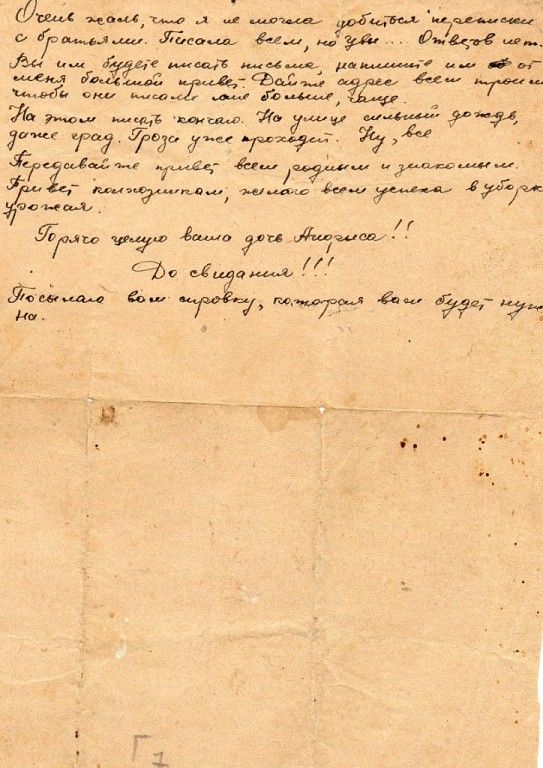 Очень жаль, что я не могла добиться переписки
с братьями. Писала всем, но увы... Ответов нет.
Вы им будете писать письма, напишите им от
меня большой привет. Дайте адрес всем троим
чтобы они писали мне больше, чаще.
На этом писать кончаю. На улице сильный дождь,
даже град. Гроза уже проходит. Ну, все
Передавайте привет всем родным и знакомым.
Привет колхозникам, желаю всем успеха в уборк
урожая.
Горячо целую ваша дочь!!
До свидания!!!
Посылаю вам справку, которая вам будет нуж
на.
Г 7